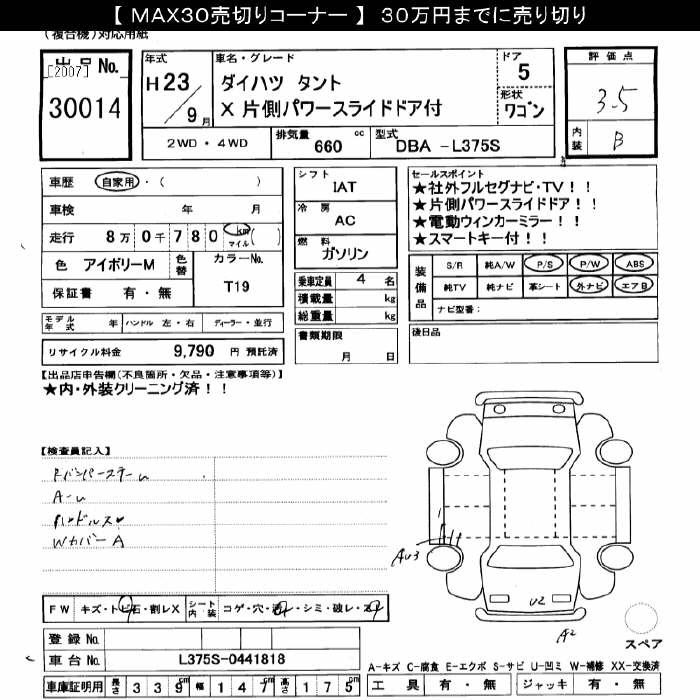 【 MAX30売切りコーナー 】 30万円までに売り切り
(複合機)対応用紙
出品No.
[2007]
30014
年式
H 23
9月
車名・グレード
ダイハツ タント
X 片側パワースライドドア付
ドア
5
形状
ワゴン
2WD・4WD
排気量
660 cc
型式
DBA -L375S
評価点
3.5
内装
B
車歴 自家用・( )
車検 年 月
走行 8万0千780 km マイル( )
色 アイボリーM 色替 カラーNo.
T19
保証書 有・無
シフト
IAT
冷房
AC
燃料
ガソリン
乗車定員 4 名
積載量 kg
総重量 kg
セールスポイント
★社外フルセグナビ・TV！！
★片側パワースライドドア！！
★電動ウィンカーミラー！！
★スマートキー付！！
装備品
S/R 純A/W P/S P/W ABS
純TV 純ナビ 革シート 外ナビ エアB
ナビ型番：
モデル年式 年 ハンドル 左・右 ディーラー・並行
リサイクル料金 9,790 円 預託済
書類期限
月 日
後日品
【出品店申告欄(不良箇所・欠品・注意事項等)】
★内・外装クリーニング済！！
【検査員記入】
A-U
WカバーA
AU3
U2
A2
スペア
FW キズ・トビ石・割レX シート内装 コゲ・穴・シミ・破レ・
登録No.
車台No. L375S-0441818
車庫証明用 長さ 339cm 幅 147cm 高さ 175cm
A-キズ C-腐食 E-エクボ S-サビ U-凹ミ W-補修 XX-交換済
工具 有・無 ジャッキ 有・無